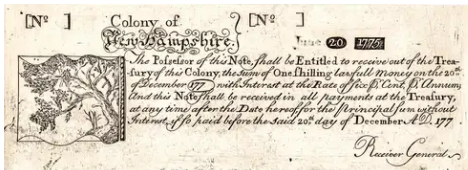 [No ] Colony of [No ]
New Hampshire. June 20 1775.
The Possessor of this Note, shall be Entitled to receive out of the Trea-
sury of this Colony, the Sum of One Shilling lawfull Money on the 20th
of December 177 with Interest at the Rate of six P. Cent, P. Annum,
And this Note shall be received in all payments at the Treasury,
at any time after the Date hereof, for the principal sum without
Interest, if so paid before the said 20th day of December A.D. 177
Receiver General.